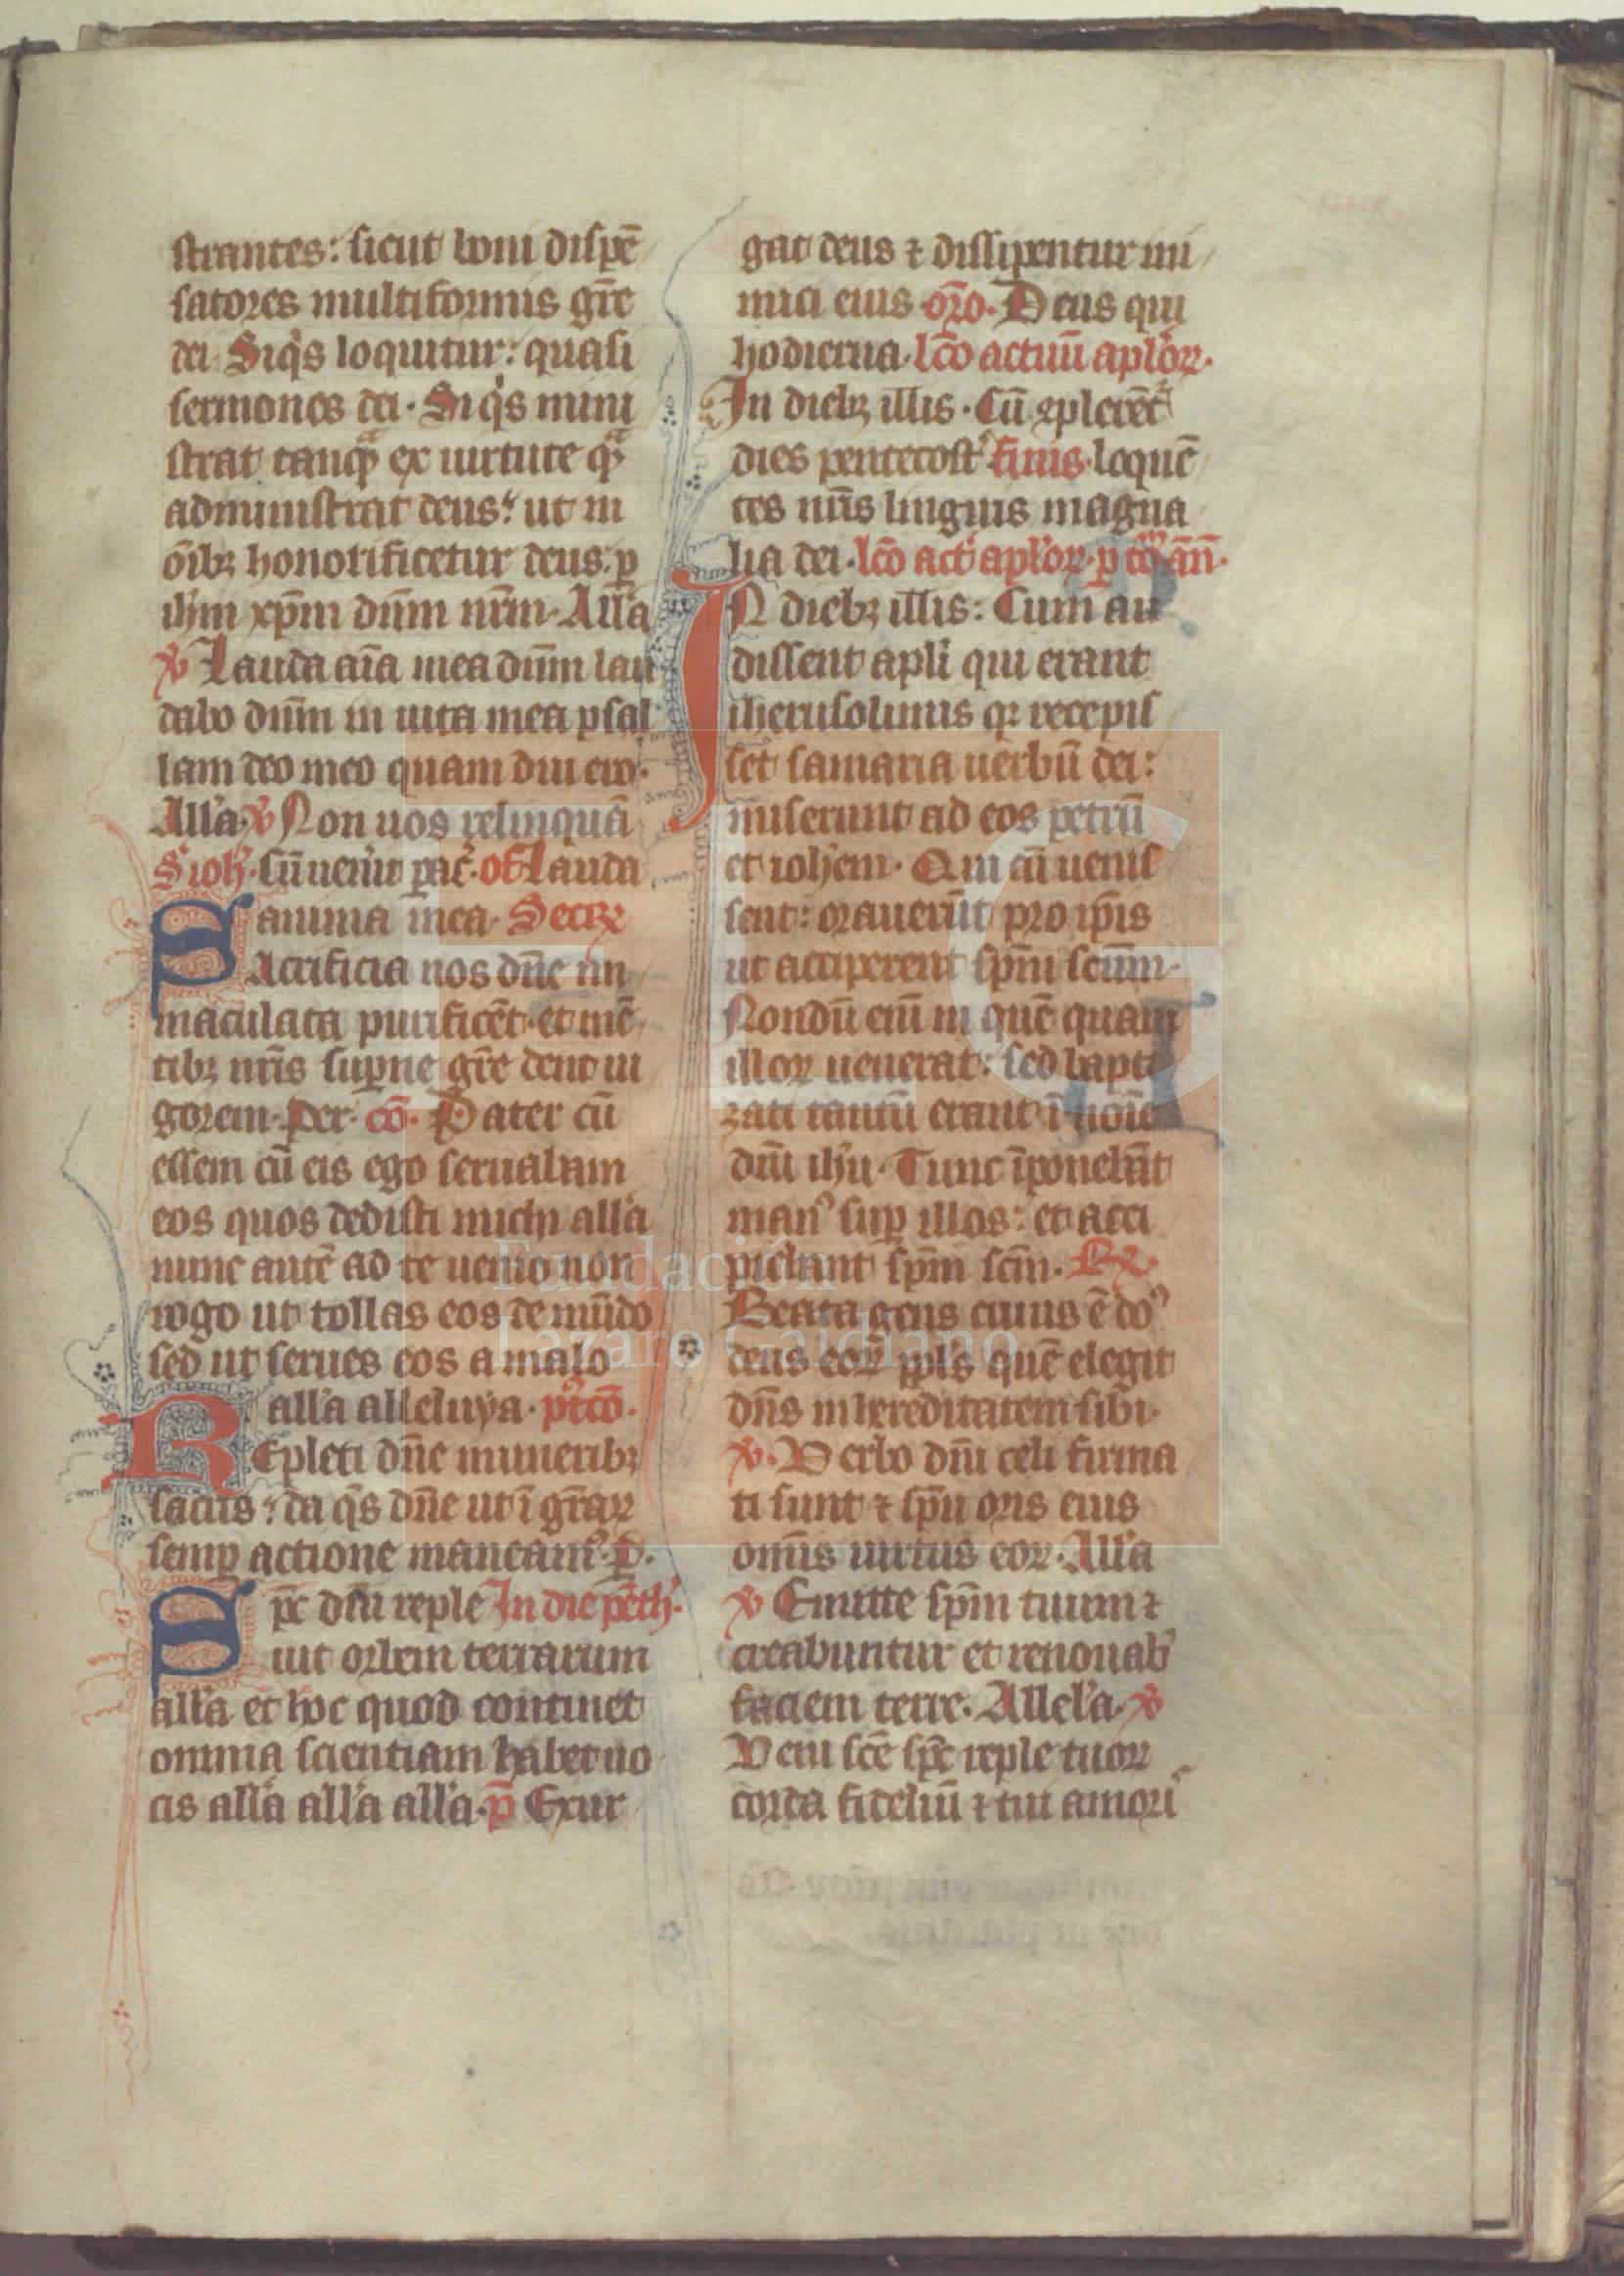 strantes: sicut boni dispē
satores multiformis gr̄e
dei. Siq̇s loquitur: quasi
sermones dei. Siq̇s mini
strat tanq̄ ex uirtute qͣ
administrat deus: ut in
oīb; honorificetur deus. ꝑ
ih̄m xp̄m dn̄m nr̄m. All'a
℣ Lauda aīa mea dn̄m lau
dabo dn̄m in uita mea psal
lam deo meo quam diu ero.
All'a ℣ Non uos relinquā
S. ioh'. Cū uen'it ꝑac'. off Lauda
anima mea. Secr̄
Sacrificia nos dn̄e im
maculata purificēt. et mē
tib; nr̄is suꝑne gr̄e dent ui
gorem. Per. cō. Pater cū
essem cū eis ego seruabam
eos quos dedisti michi all'a
nunc autē ad te uenio non
rogo ut tollas eos de mūdo
sed ut serues eos a malo
all'a alleluya. p't cō.
Repleti dn̄e munerib;
sacris: da q̄s dn̄e ut ī gr̄aꝝ
semꝑ actione maneam'. P.
Sp̄c dn̄i reple In die pēth'.
uit orbem terrarum
all'a et hoc quod continet
omnia scientiam habet uo
cis all'a all'a all'a. p̄ Exur
gat deus ⁊ dissipentur ini
mici eius or̄o. Deus qui
hodierna. lc̄o actuū apl'oꝝ.
In dieb; illis. Cū ꝯplerēt'
dies pentecost' finis. loquē
tes nr̄is linguis magna
lia dei. lc̄o act' apl'oꝝ. ꝑ totū ān̄.
IN dieb; illis: Cum au
dissent apl'i qui erant
iherusolimis qꝛ recepis
set samaria uerbū dei:
miserunt ad eos petrū
et ioh'em. Qui cū uenis
sent: orauerūt pro ip̄is
ut acciperent sp̄m scūm.
Nondū enī in quē quam
illoꝝ uenerat: sed bapti
zati tantū erant ī noīe
dn̄i ih'u. Tunc īponebāt
man' suꝑ illos: et acci
piebant sp̄m sc̄m. R̄
Beata gens cuius ē do'
deus eoꝝ ppl's quē elegit
dn̄s in hereditatem sibi.
℣. Verbo dn̄i celi firma
ti sunt ⁊ sp̄u oris eius
omīs uirtus eoꝝ. All'a
℣ Emitte sp̄m tuum ⁊
creabuntur et renouab'
faciem terre. Allel'a. ℣
Veni sc̄e sp̄c reple tuoꝝ
corda fideliū ⁊ tui amori
Fundación
Lázaro Galdiano